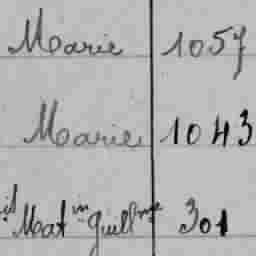 Marie 1057
Marie 1043
Mat in Guillme 301